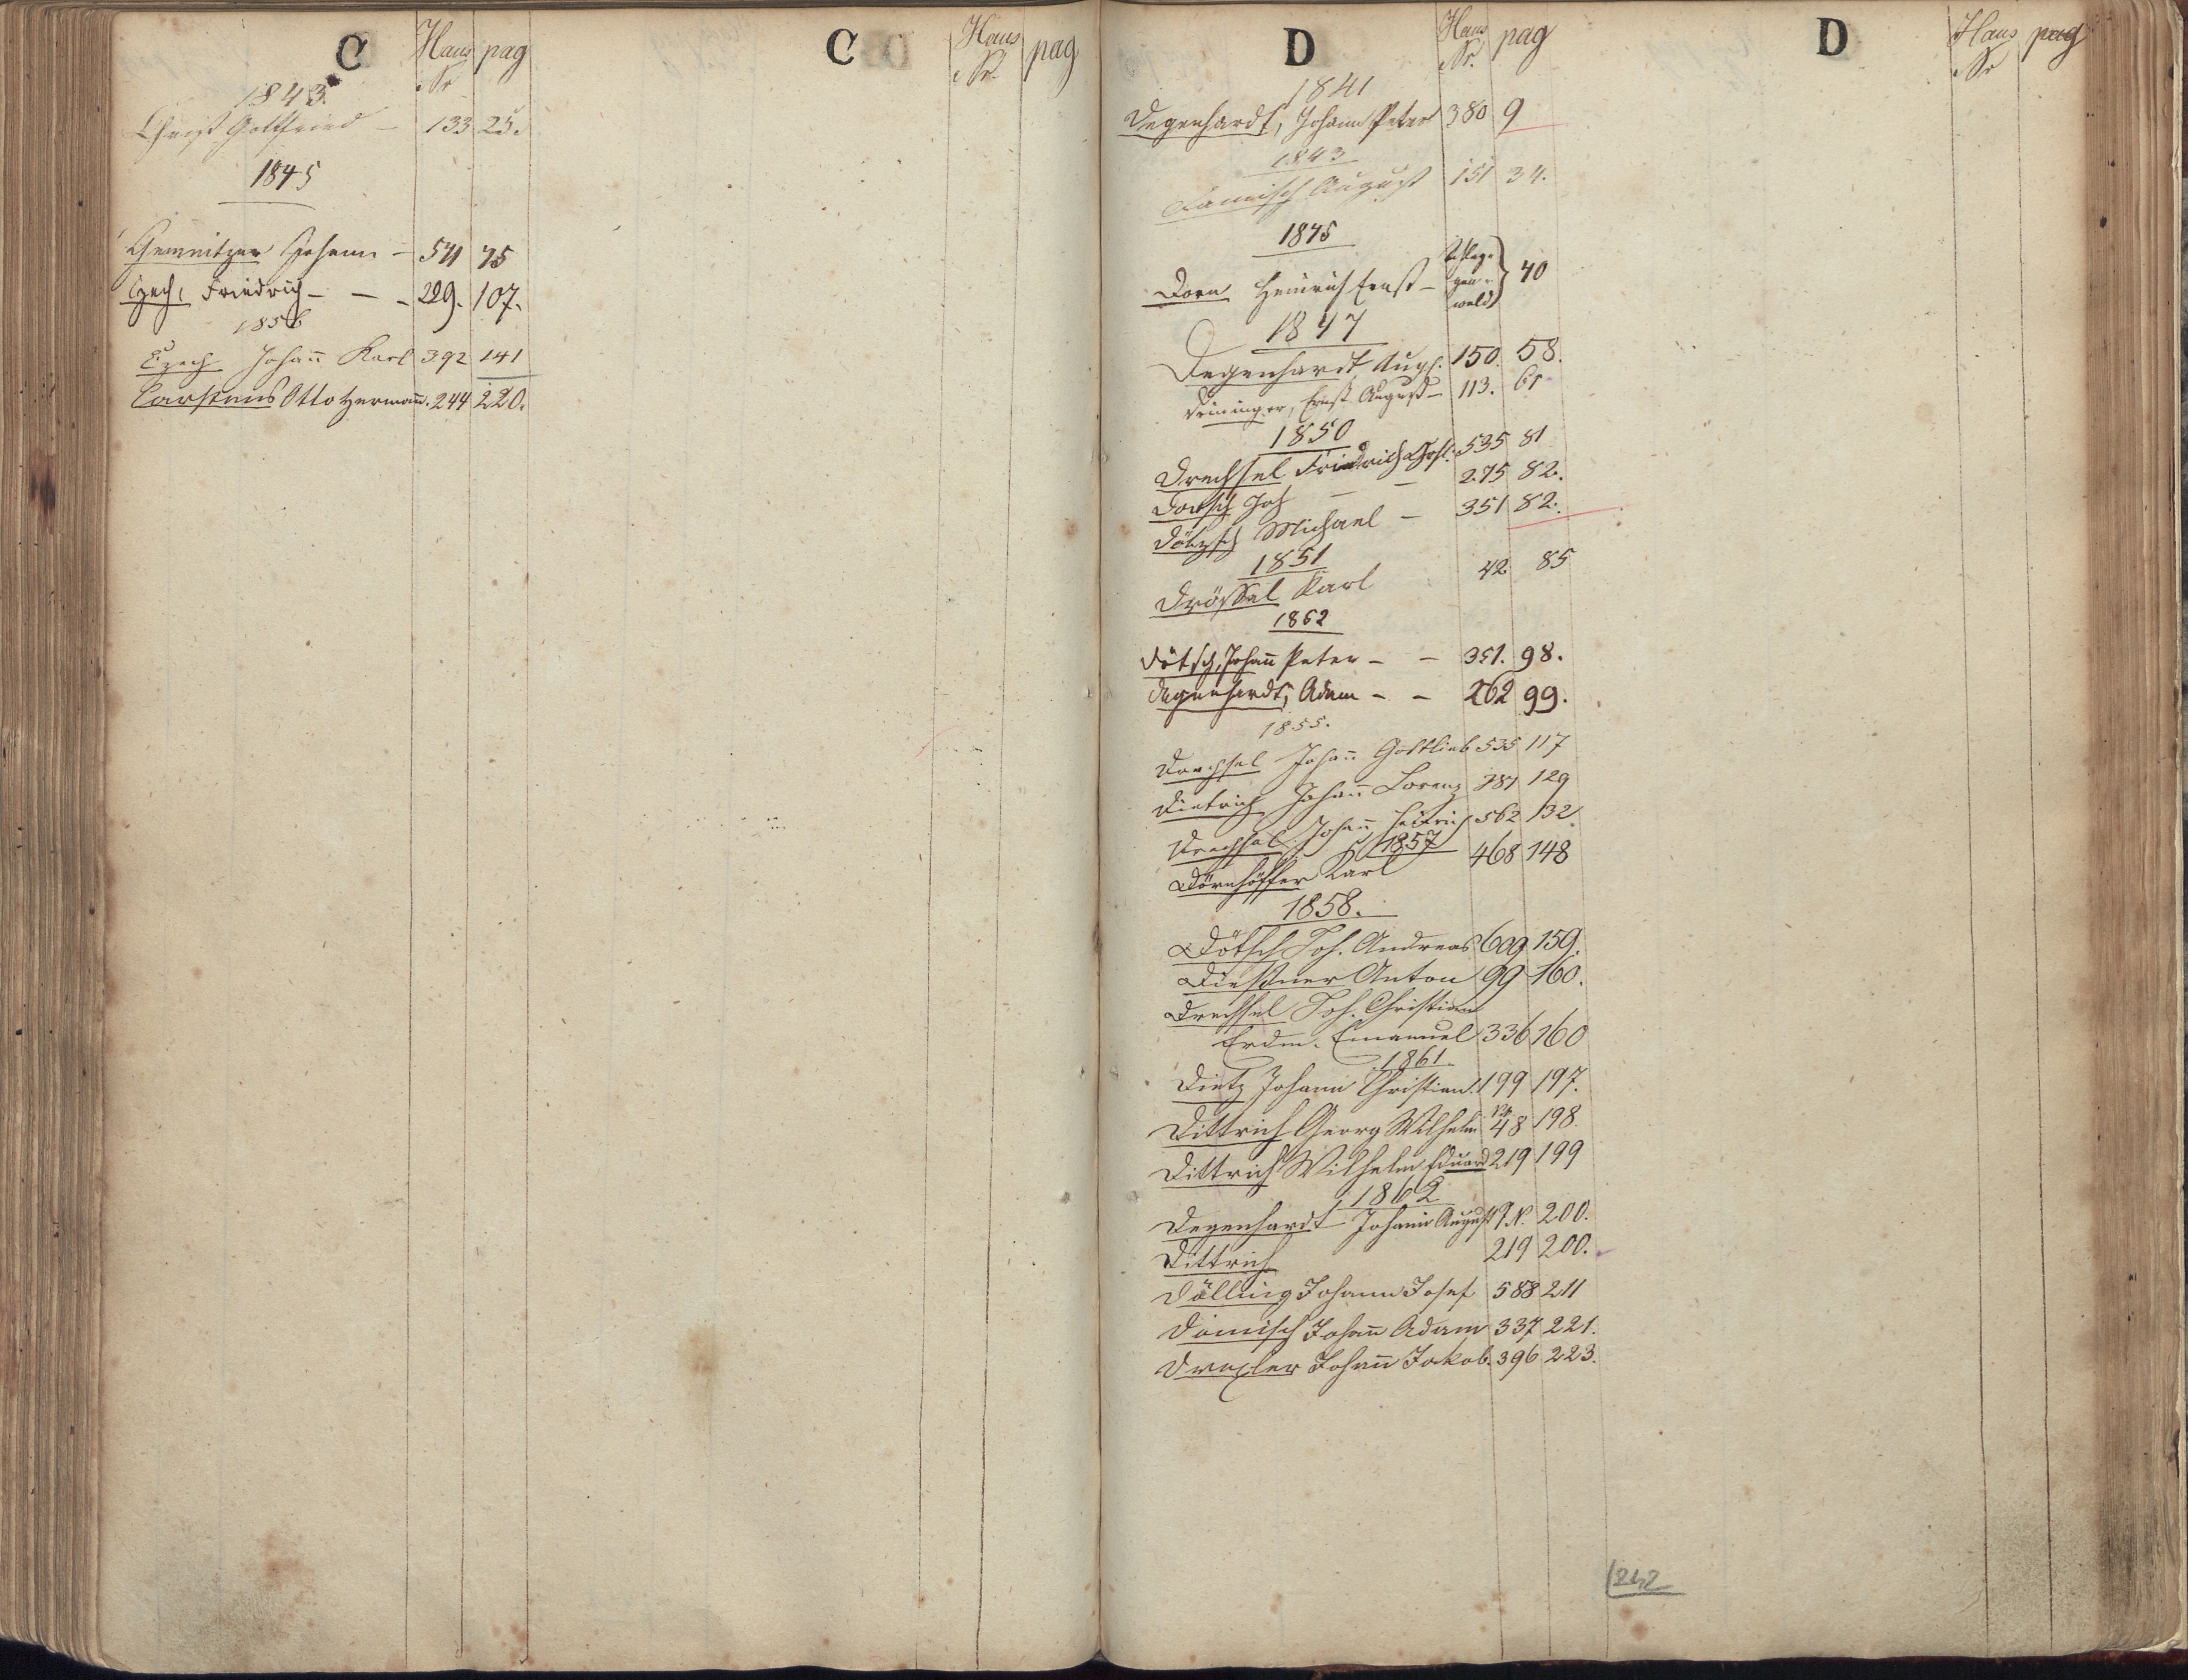 C Haus Nr pag
1843.
Christ Gottfried – 133 25.
1845
Johann – 541 75
Czech, Friedrich – – – 229. 107.
1856
Czech Johañ Karl 392 141
Carstens Otto Hermañ. 244 220.
C Haus Nr. pag
D Haus Nr. pag
1841
Degenhardt, Johann Peter 380 9
1843
August 151 34.
1845
Dorn Heinrich Ernst – 40
1847
Degenhardt, Aug. 150. 58.
Deininger, Ernst August – 113. 61
1850
Drechsel Friedrich 535 81
Dötsch Joh – – 275 82.
Dötzsch Michael – 351 82.
1851
Drössel Karl 42 85
1852
Dötsch, Johañ Peter – – 351. 98.
Degenhardt, Adam – – 262 99.
1855.
Drechsel Johañ Gottlieb 535 117
Dietrich Johañ Lorenz 129
Drechsel Johañ Heinrich 562 132
1857
Dörnhöffer Karl 468 148
1858.
Dötsch Joh. Andreas 609 159.
Diessner Anton 99 160.
Drechsel Joh. Christian
Erdm. Emanuel 336 160
1861
Dietz Johann Christian 199 197.
Dittrich Georg Wilhelm 48 198.
Dittrich Wilhelm Eduard 219 199
1862
Degenhardt Johann August 9 N. 200.
Dittrich 219 200.
Dölling Johann Josef 588 211
Dömisch Johañ Adam 337 221.
Drexler Johañ Jakob. 396 223.
D Haus Nr pag
242